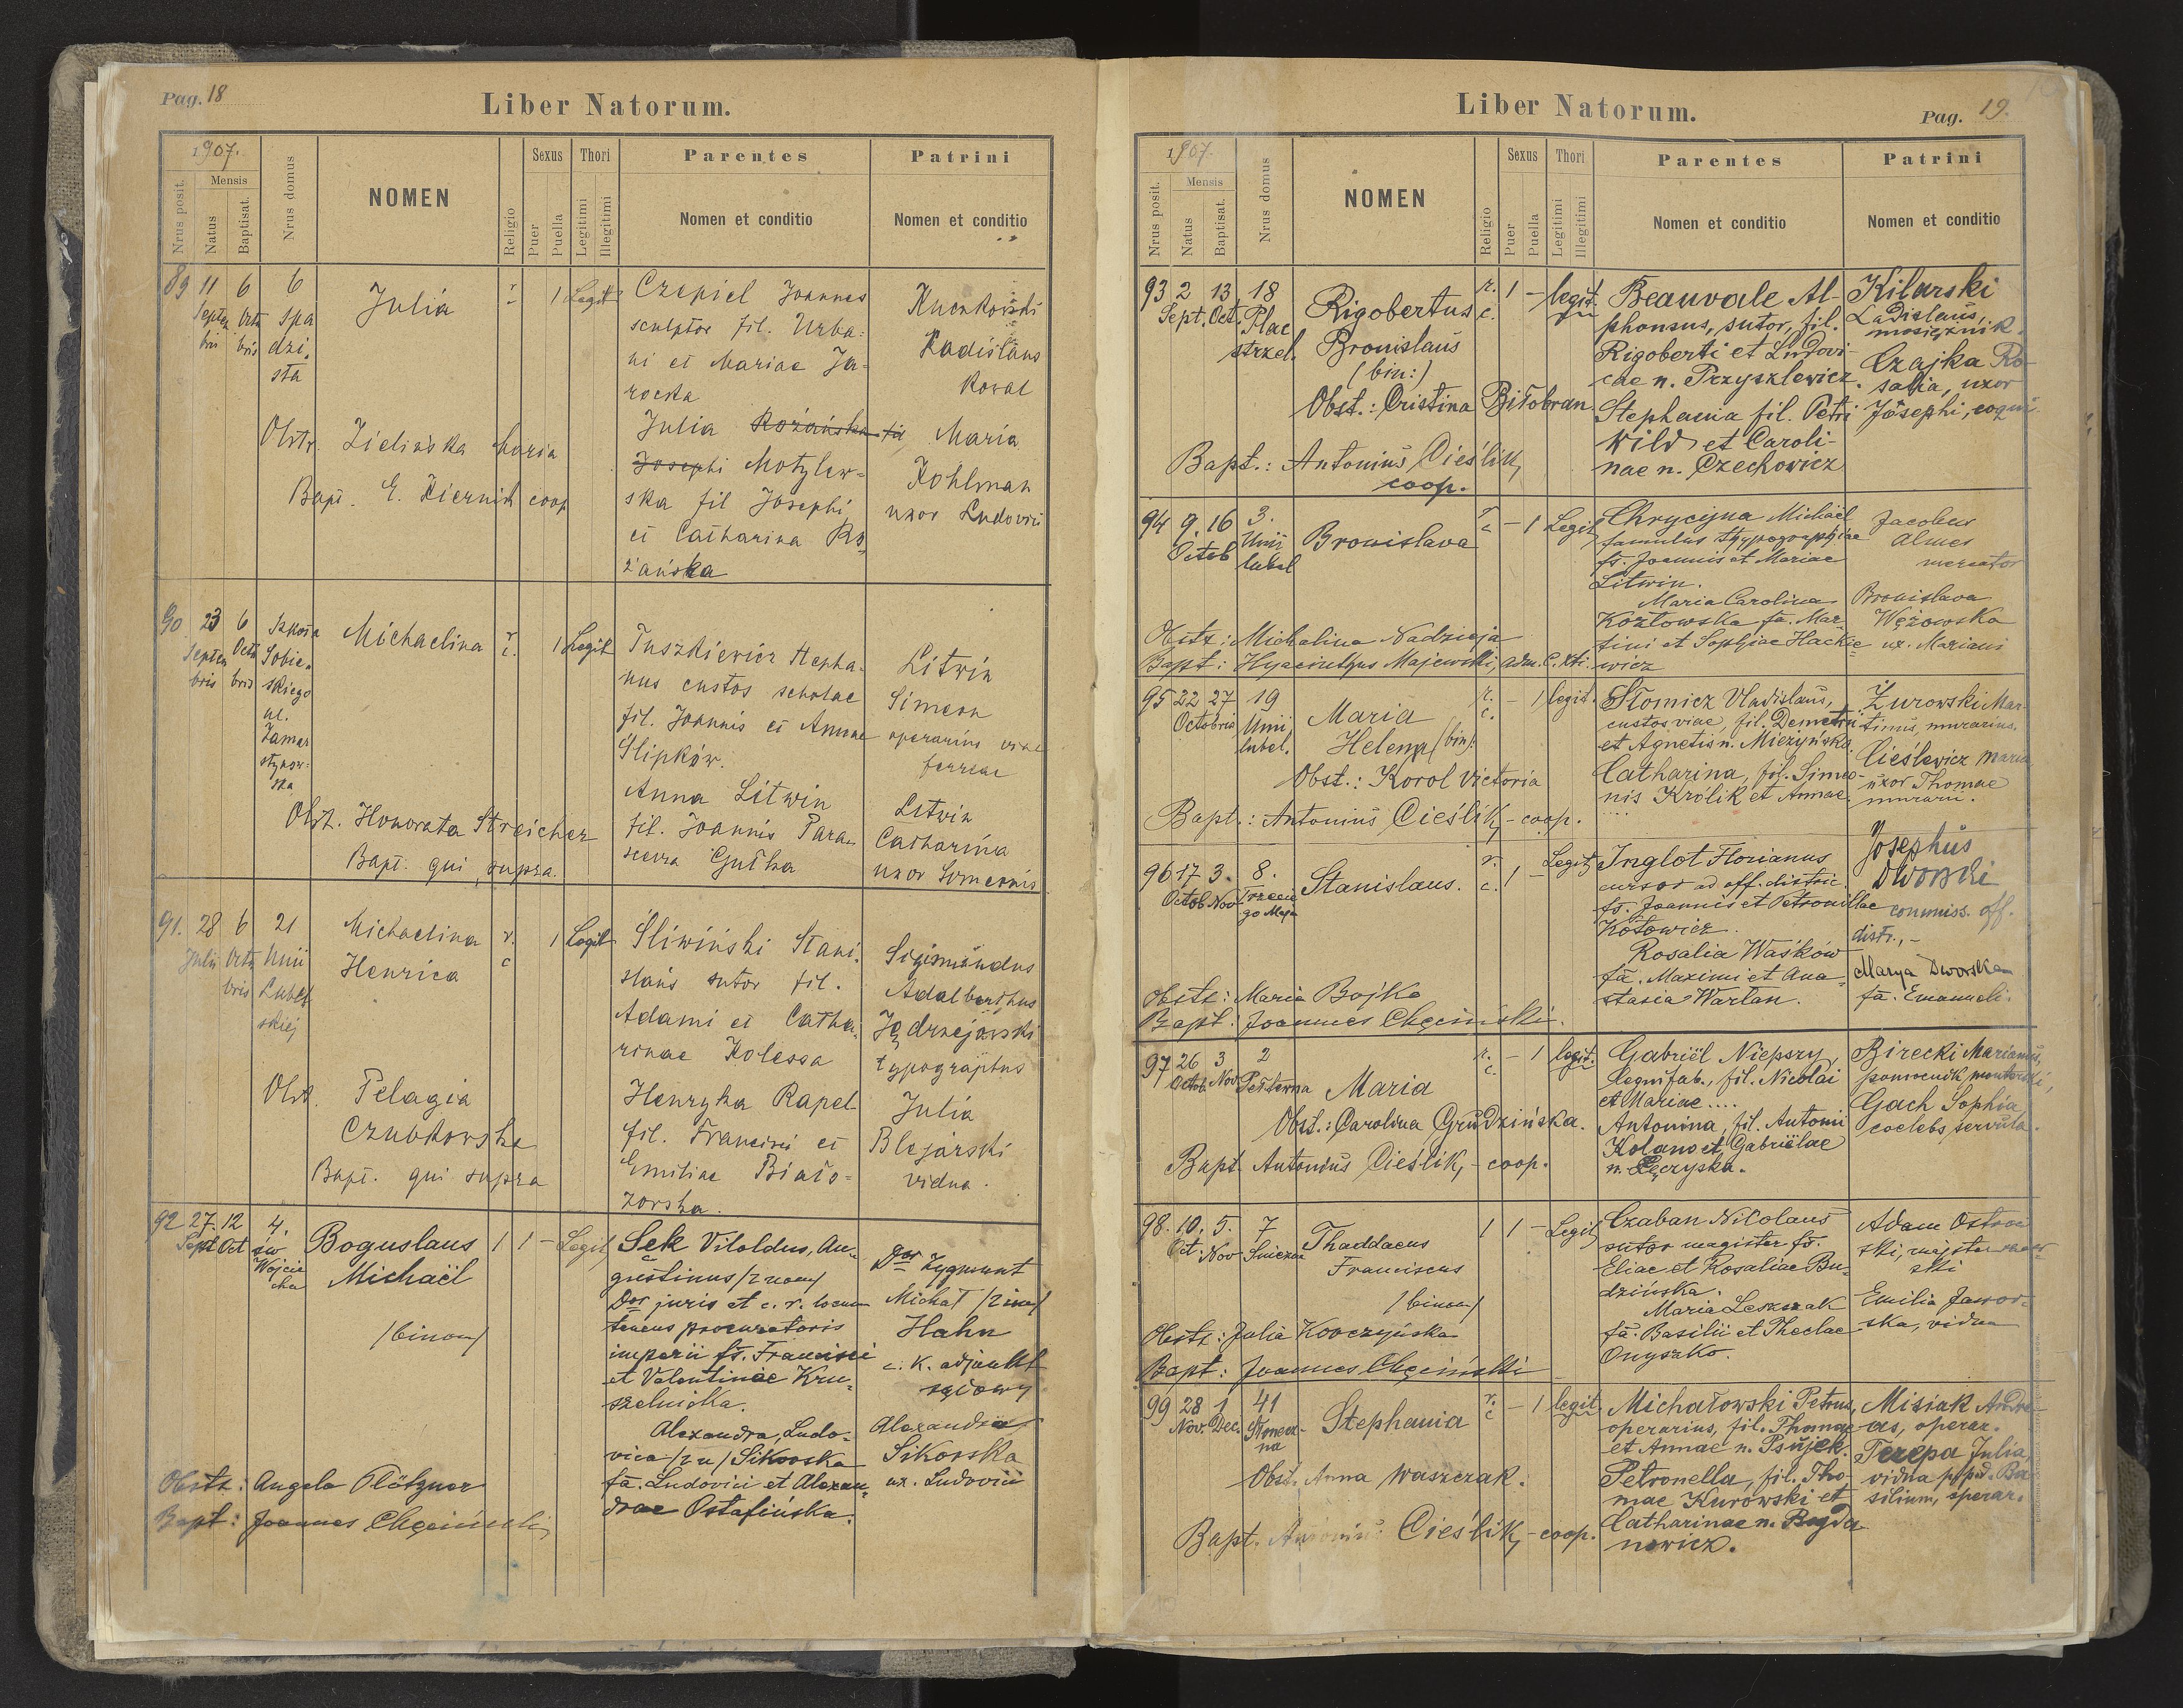 Pag. 18
Liber Natorum.
1907.
Nrus posit.
Mensis
Natus
Baptisat.
Nrus domus
NOMEN
Religio
Sexus
Puer
Puella
Thori
Legitimi
Illegitimi
Parentes
Nomen et conditio
Patrini
Nomen et conditio
89 11 6 6 Julia r. 1 Legit
Septem bris Octo bris
Czepiel Joannes
sculptor fil. Urba-
ni et Mariae Ja-
rocka
Julia Rożańska fil
Josephi Motylew-
ska fil Josephi
et Catharina Ro-
żańska
Ladislaus
Koval
Maria
Kohlman
uxor Ludovici
Obstr. Zielińska Maria
Bapt. E. coop
90 23 6 Szkoła
Septem bris Octo bris
Sobie-
skiego
ul.
Zamar
stynow-
ska
Michaelina r. c. 1 Legit
Tuszkiewicz Stepha-
nus custos scholae
fil. Joannis et Annae
Slipków.
Anna Litwin
fil. Joannis Para-
scevra Gutka
Litwin
Simeon
operarius viae
ferreae
Litwin
Catharina
uxor Simeonis
Obst. Honorata Streicher
Bapt. qui supra.
91. 28 6 21
Julii Octo bris Unii
Lubel
skiej
Michaelina
Henrica
r. c 1 Legit
Śliwiński Stani-
slaus sutor fil.
Adami et Catha-
rinae Kolessa
Henryka Rapel
fil. Francisci et
Emiliae Biało-
zorska.
Sigismundus
Adalberthus
Jędrzejowski
typographus
Julia
Blejarski
vidua.
Obst. Pelagia
Czubkowska
Bapt. qui supra
92 27. 12 4.
Sept Oct św
Wojcie
cha
Boguslaus
Michaël
/binom/
1 1 - Legit
Sęk Vitoldus, Au-
gustinus /2 nom/
Dor juris et c. r. locum
tenens procuratoris
imperii fs. Francisci
et Valentinae Kru-
szelnicka.
Alexandra, Ludo-
vica /2 n/ Sikorska
fa. Ludovici et Alexan-
drae Ostafińska.
Dor Zygmunt
Michał /2 im/
Hahn
c. k. adjunkt
sądowy
Alexandra
Sikorska
ux. Ludovici
Obstr: Angela Plötzner
Bapt: Joannes Chęciński
Liber Natorum.
Pag. 19.
1907.
Nrus posit.
Mensis
Natus
Baptisat.
Nrus domus
NOMEN
Religio
Sexus
Puer
Puella
Thori
Legitimi
Illegitimi
Parentes
Nomen et conditio
Patrini
Nomen et conditio
93 2 13 18
Sept. Oct. Plac
strzel.
Rigobertus
Bronislaus
(bin:)
r. c. 1 - legit.
Beauvale Al-
phonsus, sutor, fil.
Rigoberti et Ludovi-
cae n. Przyszlewicz.
Stephania fil. Petri
Wild et Caroli-
nae n. Czechowicz
Kilarski
Ladislaus,
mosiężnik.
Czajka Ro-
salia, uxor
Josephi, coqui
Obst.: Cristina Biłobran.
Bapt.: Antonius Cieślik,
coop.
94 9. 16 3.
Octob Unii
lubel
Bronislava r c - 1 Legit
Chrycyna Michaël
famulus typographiae
fs. Joannis et Mariae
Litwin.
Maria Carolina
Kozłowska fa. Mar-
tini et Sophiae Hackie-
wicz
Jacobus
Almes
mercator
Bronislava
Wężowska
ux. Mariani
Obstr: Michalina Nadzieja
Bapt: Hyacinthus Majewski, adm.
95 22 27 19
Octobris Unii
lubel.
Maria
Helena (bin):
r. c. - 1 legit.
Słomicz Vladislaus,
custos viae, fil. Demetri
et Agnetis n. Mieżyńska.
Catharina, fil. Simeo-
nis Królik et Annae
....
Żurowski Mar-
tinus, murarius.
Cieślewicz Maria
uxor Thomae
murarii.
Obst.: Korol Victoria
Bapt.: Antonius Cieślik, - coop.
96 17 3. 8.
Octob Nov Trzecie
go Maja
Stanislaus. r. c. 1 - Legit
Inglot Florianus
cursor ad off. distric.
fs. Joannis et Petronillae
Kotowicz.
Rosalia Waśków
fa. Maximi et Ana-
stasia Wartan.
Josephus
Dworski
commiss. off.
distr.,-
Marya Dworska
fa. Emanueli.
Obstr: Maria Bojko
Bapt: Joannes Chęciński.
97 26 3 2
Octob. Nov Peltewna
Maria r. c. - 1 legit.
Gabriël Niepszy,
lignifab., fil. Nicolai
et Mariae ....
Antonina, fil. Antonii
Kolano et Gabriëlae
n. Łęczyska.
Birecki Marianus,
pomocnik monterski,
Gach Sophia,
coelebs, servula.
Obst.: Carolina Grudzińska.
Bapt Antonius Cieślik, - coop.
98. 10. 5. 7
Oct. Nov Śnieżna
Thaddaeus
Franciscus
/binom/
1 1 - Legit
Czaban Nicolaus
sutor magister fs.
Eliae et Rosaliae Bu-
dzińska.
Maria Leszczak
fa. Basilii et Theclae
Onyszko.
Adam Ostrow
ski, majster szew-
ski
Emilia Jawor-
ska, vidua
Obstr: Julia Kovczyńska
Bapt: Joannes Chęciński
99 28 1 41
Nov. Dec. Słonecz-
na
Stephania r. c - 1 legit.
Michałowski Petrus,
operarius, fil. Thomae
et Annae n. Psujek.
Petronella, fil. Tho-
mae Kurowski et
Catharinae n. Bogda
nowicz.
Misiak Andre-
as, operar.
Terepa Julia,
vidua p/pd. Ba-
silium, operar.
Obst. Anna Waszczak.
Bapt. Antonius Cieślik, - coop.